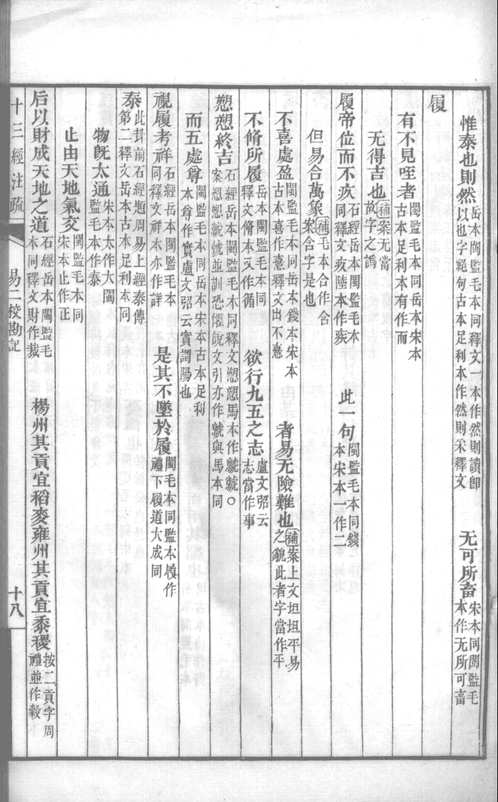 惟泰也則然岳本閩監毛本同釋文一本作然則讀卽以也字絕句古本足利本作然則采釋文　无可所畜宋本同閩監毛本作无所可畜
履
有不見咥者閩監毛本同岳本宋本古本足利本有作而
无得吉也補案无當故字之譌
履帝位而不疚石經岳本閩監毛本同釋文疚陸本作疾　此一句閩監毛本同錢本宋本一作二
但易合萬象補毛本合作含案含字是也
不喜處盈閩監毛本同岳本錢本宋本古本喜作憙釋文出不憙　者易无險難也補案上文坦坦平易之貌此者字當作平
不脩所履岳本閩監毛本同釋文脩本又作循　欲行九五之志盧文弨云志當作事
愬愬終吉石經岳本閩監毛本同釋文愬愬馬本作虩虩○案愬愬虩虩並訓恐懼說文引亦作虩與馬本同
而五處尊閩監毛本同岳本宋本古本足利本尊作實盧文弨云實謂陽也
視履考祥石經岳本閩監毛本同釋文祥本亦作詳　是其不墜於履閩毛本同監本於作禮下履道大成同
泰此卦前石經題周易上經泰傳第二釋文岳本古本足利本同
物旣太通宋本太作大閩監毛本作泰
止由天地氣交閩監毛本同宋本止作正
后以財成天地之道石經岳本閩監毛本同釋文財作裁　楊州其貢宜稻麥雍州其貢宜黍稷按二貢字周禮並作穀
十三經注疏　易二校勘記　十八